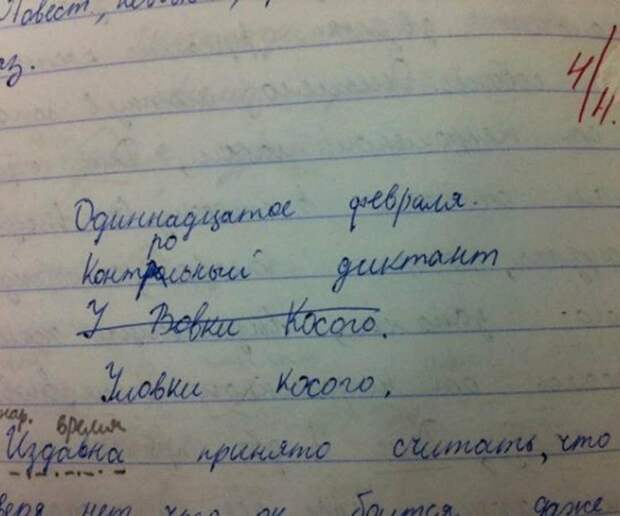 Повест,
аз.
4/4.
Одиннадцатое февраля.
Контрольный диктант
У Вовки Косого.
Уловки Косого.
нар. время
Издавна принято считать, что
зверя нет чего он боится даже